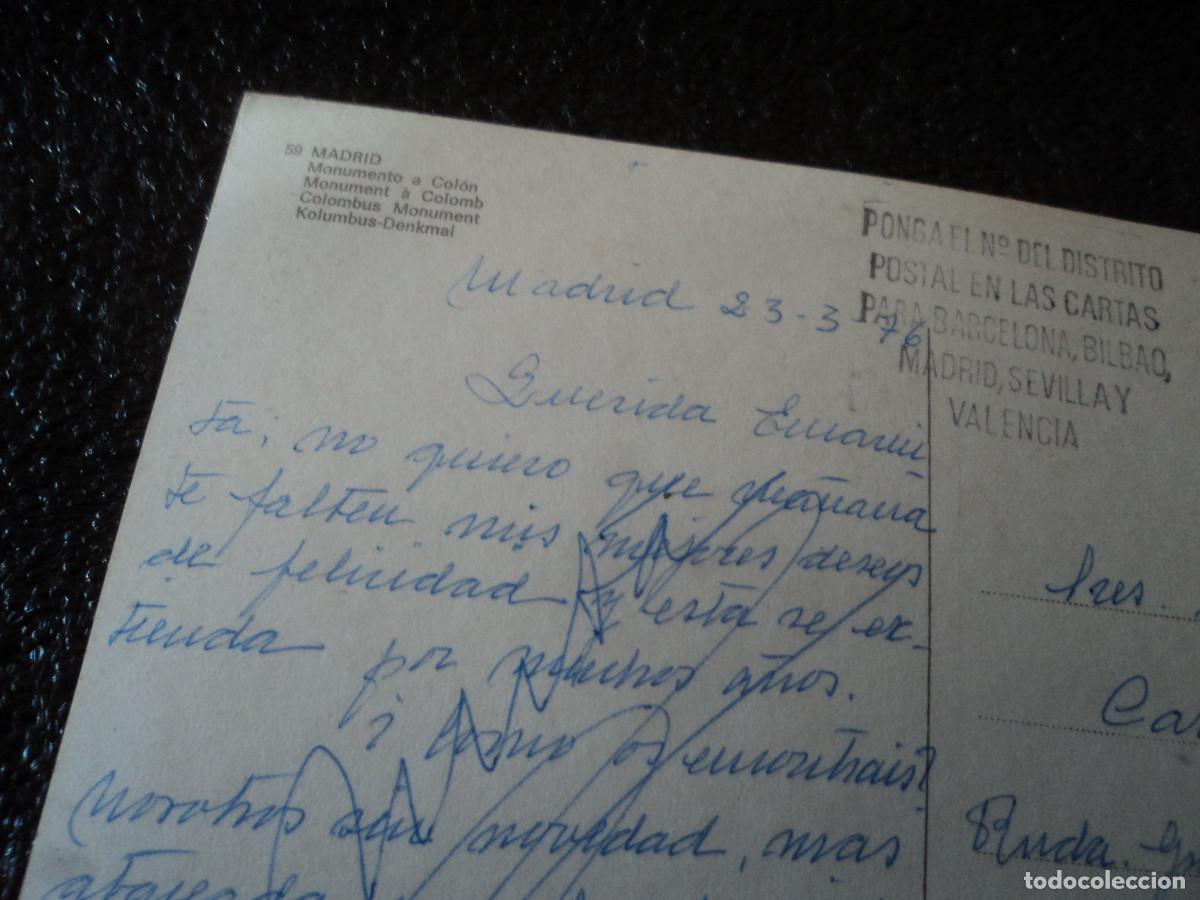 59 MADRID
Monumento a Colón
Monument à Colomb
Colombus Monument
Kolumbus-Denkmal
PONGA EL Nº DEL DISTRITO
POSTAL EN LAS CARTAS
PARA BARCELONA, BILBAO,
MADRID, SEVILLA Y
VALENCIA
Madrid 23-3-76
Querida
ta; no quiero que mañana
te falten mis mejores deseos
de felicidad y esta se ex-
tienda por muchos años.
¿Como os encontrais?
Nosotros sin novedad, mas
Sres.
Ca
Ruda.
todocoleccion